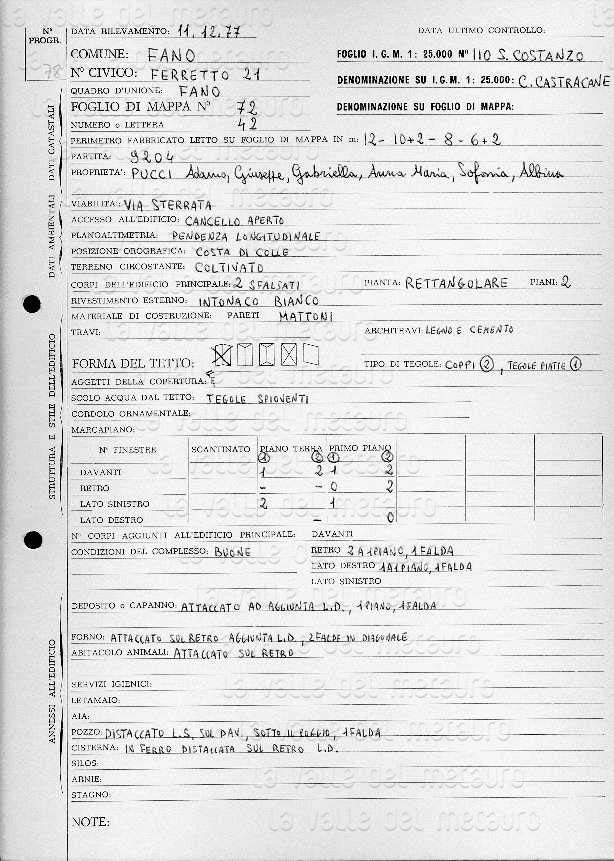 N°
PROGR.
78
DATA RILEVAMENTO: 11.12.77
DATA ULTIMO CONTROLLO:
COMUNE: FANO
FOGLIO I.G.M. 1: 25.000 N° 110 S. COSTANZO
N° CIVICO: FERRETTO 21
DENOMINAZIONE SU I.G.M. 1: 25.000: C. CASTRACANE
QUADRO D'UNIONE: FANO
FOGLIO DI MAPPA N° 72
DENOMINAZIONE SU FOGLIO DI MAPPA:
NUMERO o LETTERA 42
PERIMETRO FABBRICATO LETTO SU FOGLIO DI MAPPA IN m: 12-10+2-8-6+2
PARTITA: 9204
PROPRIETA': PUCCI Adamo, Giuseppe, Gabriella, Anna Maria, Sofonia, Albina
DATI CATASTALI
VIABILITA': VIA STERRATA
ACCESSO ALL'EDIFICIO: CANCELLO APERTO
PLANOALTIMETRIA: PENDENZA LONGITUDINALE
POSIZIONE OROGRAFICA: COSTA DI COLLE
TERRENO CIRCOSTANTE: COLTIVATO
DATI AMBIENTALI
CORPI DELL'EDIFICIO PRINCIPALE: 2 SFALSATI
PIANTA: RETTANGOLARE PIANI: 2
RIVESTIMENTO ESTERNO: INTONACO BIANCO
MATERIALE DI COSTRUZIONE: PARETI MATTONI
TRAVI:
ARCHITRAVI: LEGNO E CEMENTO
FORMA DEL TETTO:
TIPO DI TEGOLE: COPPI (2), TEGOLE PIATTE (1)
AGGETTI DELLA COPERTURA:
SCOLO ACQUA DAL TETTO: TEGOLE SPIOVENTI
CORDOLO ORNAMENTALE:
MARCAPIANO:
N° FINESTRE SCANTINATO PIANO TERRA PRIMO PIANO
(1) (2) (1) (2)
DAVANTI 1 2 1 2
RETRO - - 0 2
LATO SINISTRO 2 1
LATO DESTRO - 0
STRUTTURA E STILE DELL'EDIFICIO
N° CORPI AGGIUNTI ALL'EDIFICIO PRINCIPALE: DAVANTI
CONDIZIONI DEL COMPLESSO: BUONE
RETRO 2 A 1 PIANO, 1 FALDA
LATO DESTRO 1 A 1 PIANO, 1 FALDA
LATO SINISTRO
DEPOSITO o CAPANNO: ATTACCATO AD AGGIUNTA L.D., 1 PIANO, 1 FALDA
FORNO: ATTACCATO SUL RETRO AGGIUNTA L.D., 2 FALDE IN DIAGONALE
ABITACOLO ANIMALI: ATTACCATO SUL RETRO
SERVIZI IGIENICI:
LETAMAIO:
AIA:
POZZO: DISTACCATO L.S. SUL DAV., SOTTO IL POGGIO, 1 FALDA
CISTERNA: IN FERRO DISTACCATA SUL RETRO L.D.
SILOS:
ARNIE:
STAGNO:
ANNESSI ALL'EDIFICIO
NOTE:
la valle del metauro